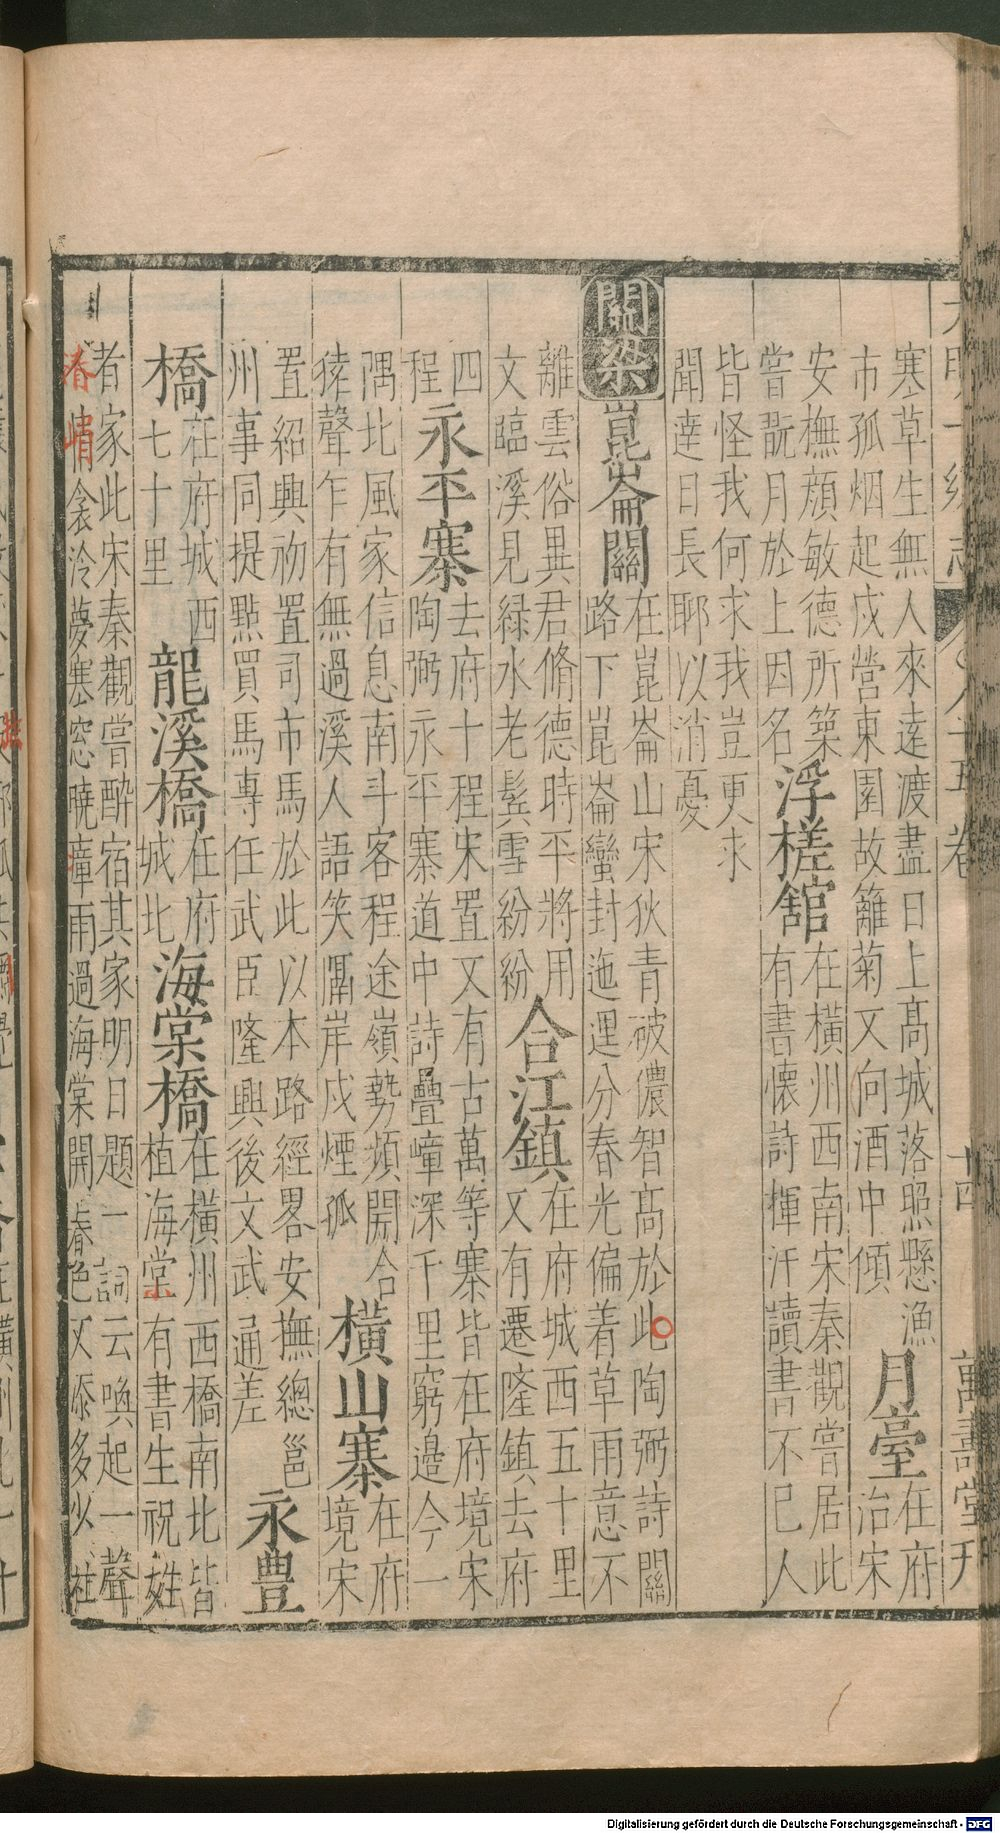 大明一統志 八十五卷 十四 萬壽堂刊
寒草生無人來逹渡盡日上高城落照懸漁
市孤烟起戍營東園故籬菊又向酒中傾
月臺
在府
治宋
安撫顔敏德所築
嘗翫月於上因名
浮槎舘
在橫州西南宋秦觀嘗居此
有書懷詩揮汗讀書不已人
皆怪我何求我豈更求
聞逹日長耶以消憂
關梁
崑崙關
在崑崙山宋狄青破儂智高於此陶弼詩關
路下崑崙蠻封迤邐分春光偏着草雨意不
離雲俗異君脩德時平將用
文臨溪見緑水老鬂雪紛紛
合江鎮
在府城西五十里
又有遷隆鎮去府
四
程
永平寨
去府十程宋置又有古萬等寨皆在府境宋
陶弼永平寨道中詩疊嶂深千里窮邉今一
隅北風家信息南斗客程途嶺勢頻開合
猿聲乍有無過溪人語笑隔岸戍煙孤
橫山寨
在府
境宋
置紹興初置司市馬於此以本路經畧安撫總邕
州事同提㸃買馬專任武臣隆興後文武通差
永豊
橋
在府城西
七十里
龍溪橋
在府
城北
海棠橋
在橫州西橋南北皆
植海棠有書生祝姓
者家此宋秦觀嘗醉宿其家明日題一詞云喚起一聲
人悄衾冷夢寒窓曉瘴雨過海棠開春色又添多少社
春
悄